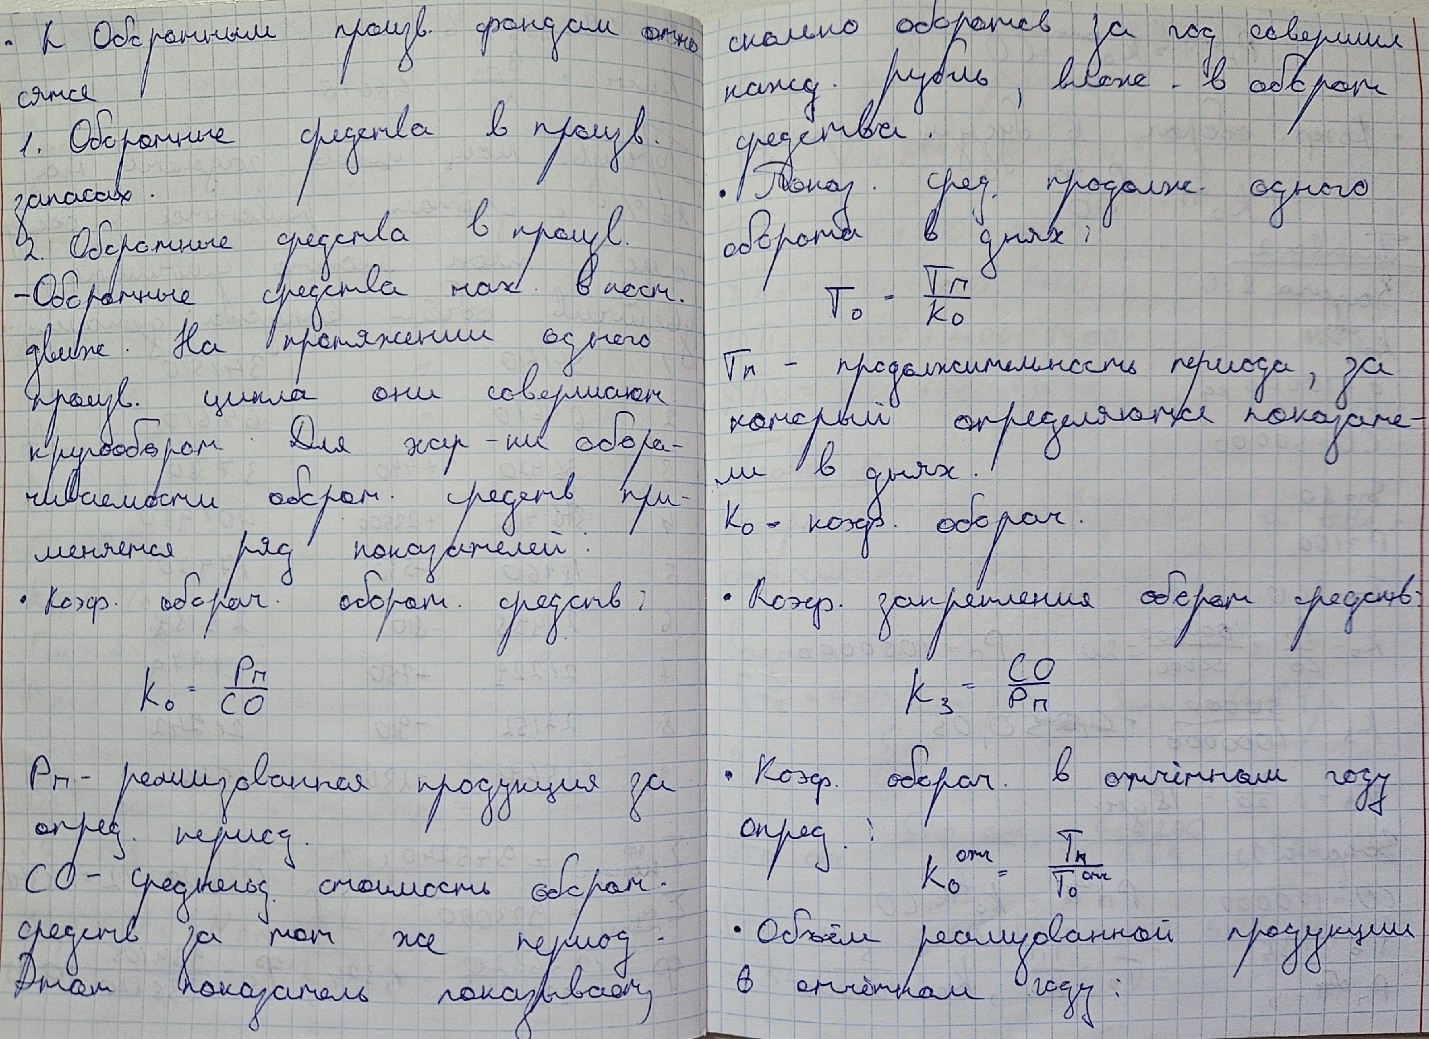 • К Оборотным произв. фондам отно
сятся
1. Оборотные средства в произв.
запасах.
2. Оборотные средства в произв.
- Оборотные средства нах. в пост.
движ. На протяжении одного
произв. цикла они совершают
кругооборот. Для хар-ки обора-
чиваемости оборот. средств при-
меняется ряд показателей:
• Коэф. оборач. оборот. средств:
Ко = Рп / СО
Рп - реализованная продукция за
опред. период.
СО - среднегод. стоимость оборот.
средств за тот же период.
Этот показатель показывает,
сколько оборотов за год совершил
кажд. рубль, влож. в оборот
средства.
• Показ. сред. продолж. одного
оборота в днях:
То = Тп / Ко
Тп - продолжительность периода, за
который определяются показате-
ли в днях.
Ко - коэф. оборач.
• Коэф. закрепления оборот средств:
Кз = СО / Рп
• Коэф. оборач. в отчётном году
опред.:
Ко отч = Тп / То отч
• Объём реализованной продукции
в отчётном году: